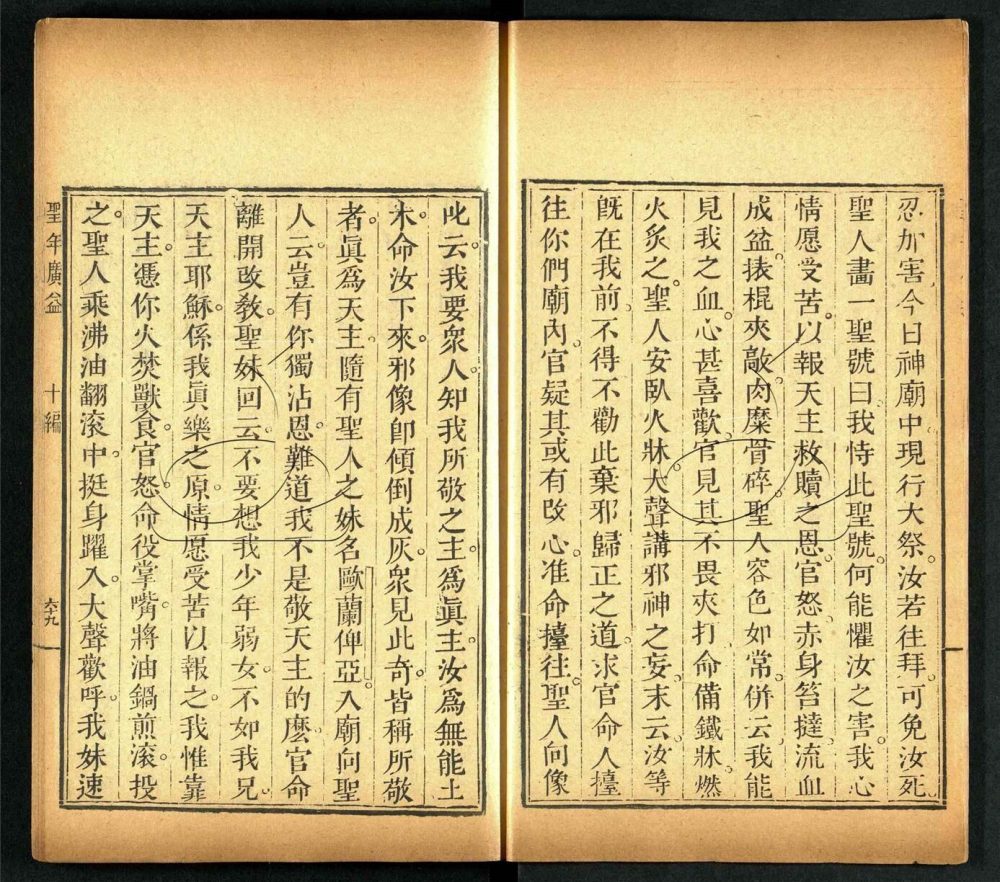 忍加害今日神廟中現行大祭汝若往拜可免汝死
聖人畫一聖號曰我恃此聖號何能懼汝之害我心
情愿受苦以報天主救贖之恩官怒赤身笞撻流血
成盆裱棍夾敲肉糜骨碎聖人容色如常併云我能
見我之血心甚喜歡官見其不畏夾打命備鐵牀燃
火炙之聖人安臥火牀大聲講邪神之妄末云汝等
旣在我前不得不勸此棄邪歸正之道求官命人擡
往你們廟內官疑其或有改心准命擡往聖人向像
此云我要衆人知我所敬之主爲眞主汝爲無能土
木命汝下來邪像卽傾倒成灰衆見此奇皆稱所敬
者眞爲天主隨有聖人之妹名歐蘭俾亞入廟向聖
人云豈有你獨沾恩難道我不是敬天主的麽官命
離開改敎聖妹回云不要想我少年弱女不如我兄
天主耶穌係我眞樂之原情愿受苦以報之我惟靠
天主憑你火焚獸食官怒命役掌嘴將油鍋煎滾投
之聖人乘沸油翻滾中挺身躍入大聲歡呼我妹速
聖年廣益 十編 六十九